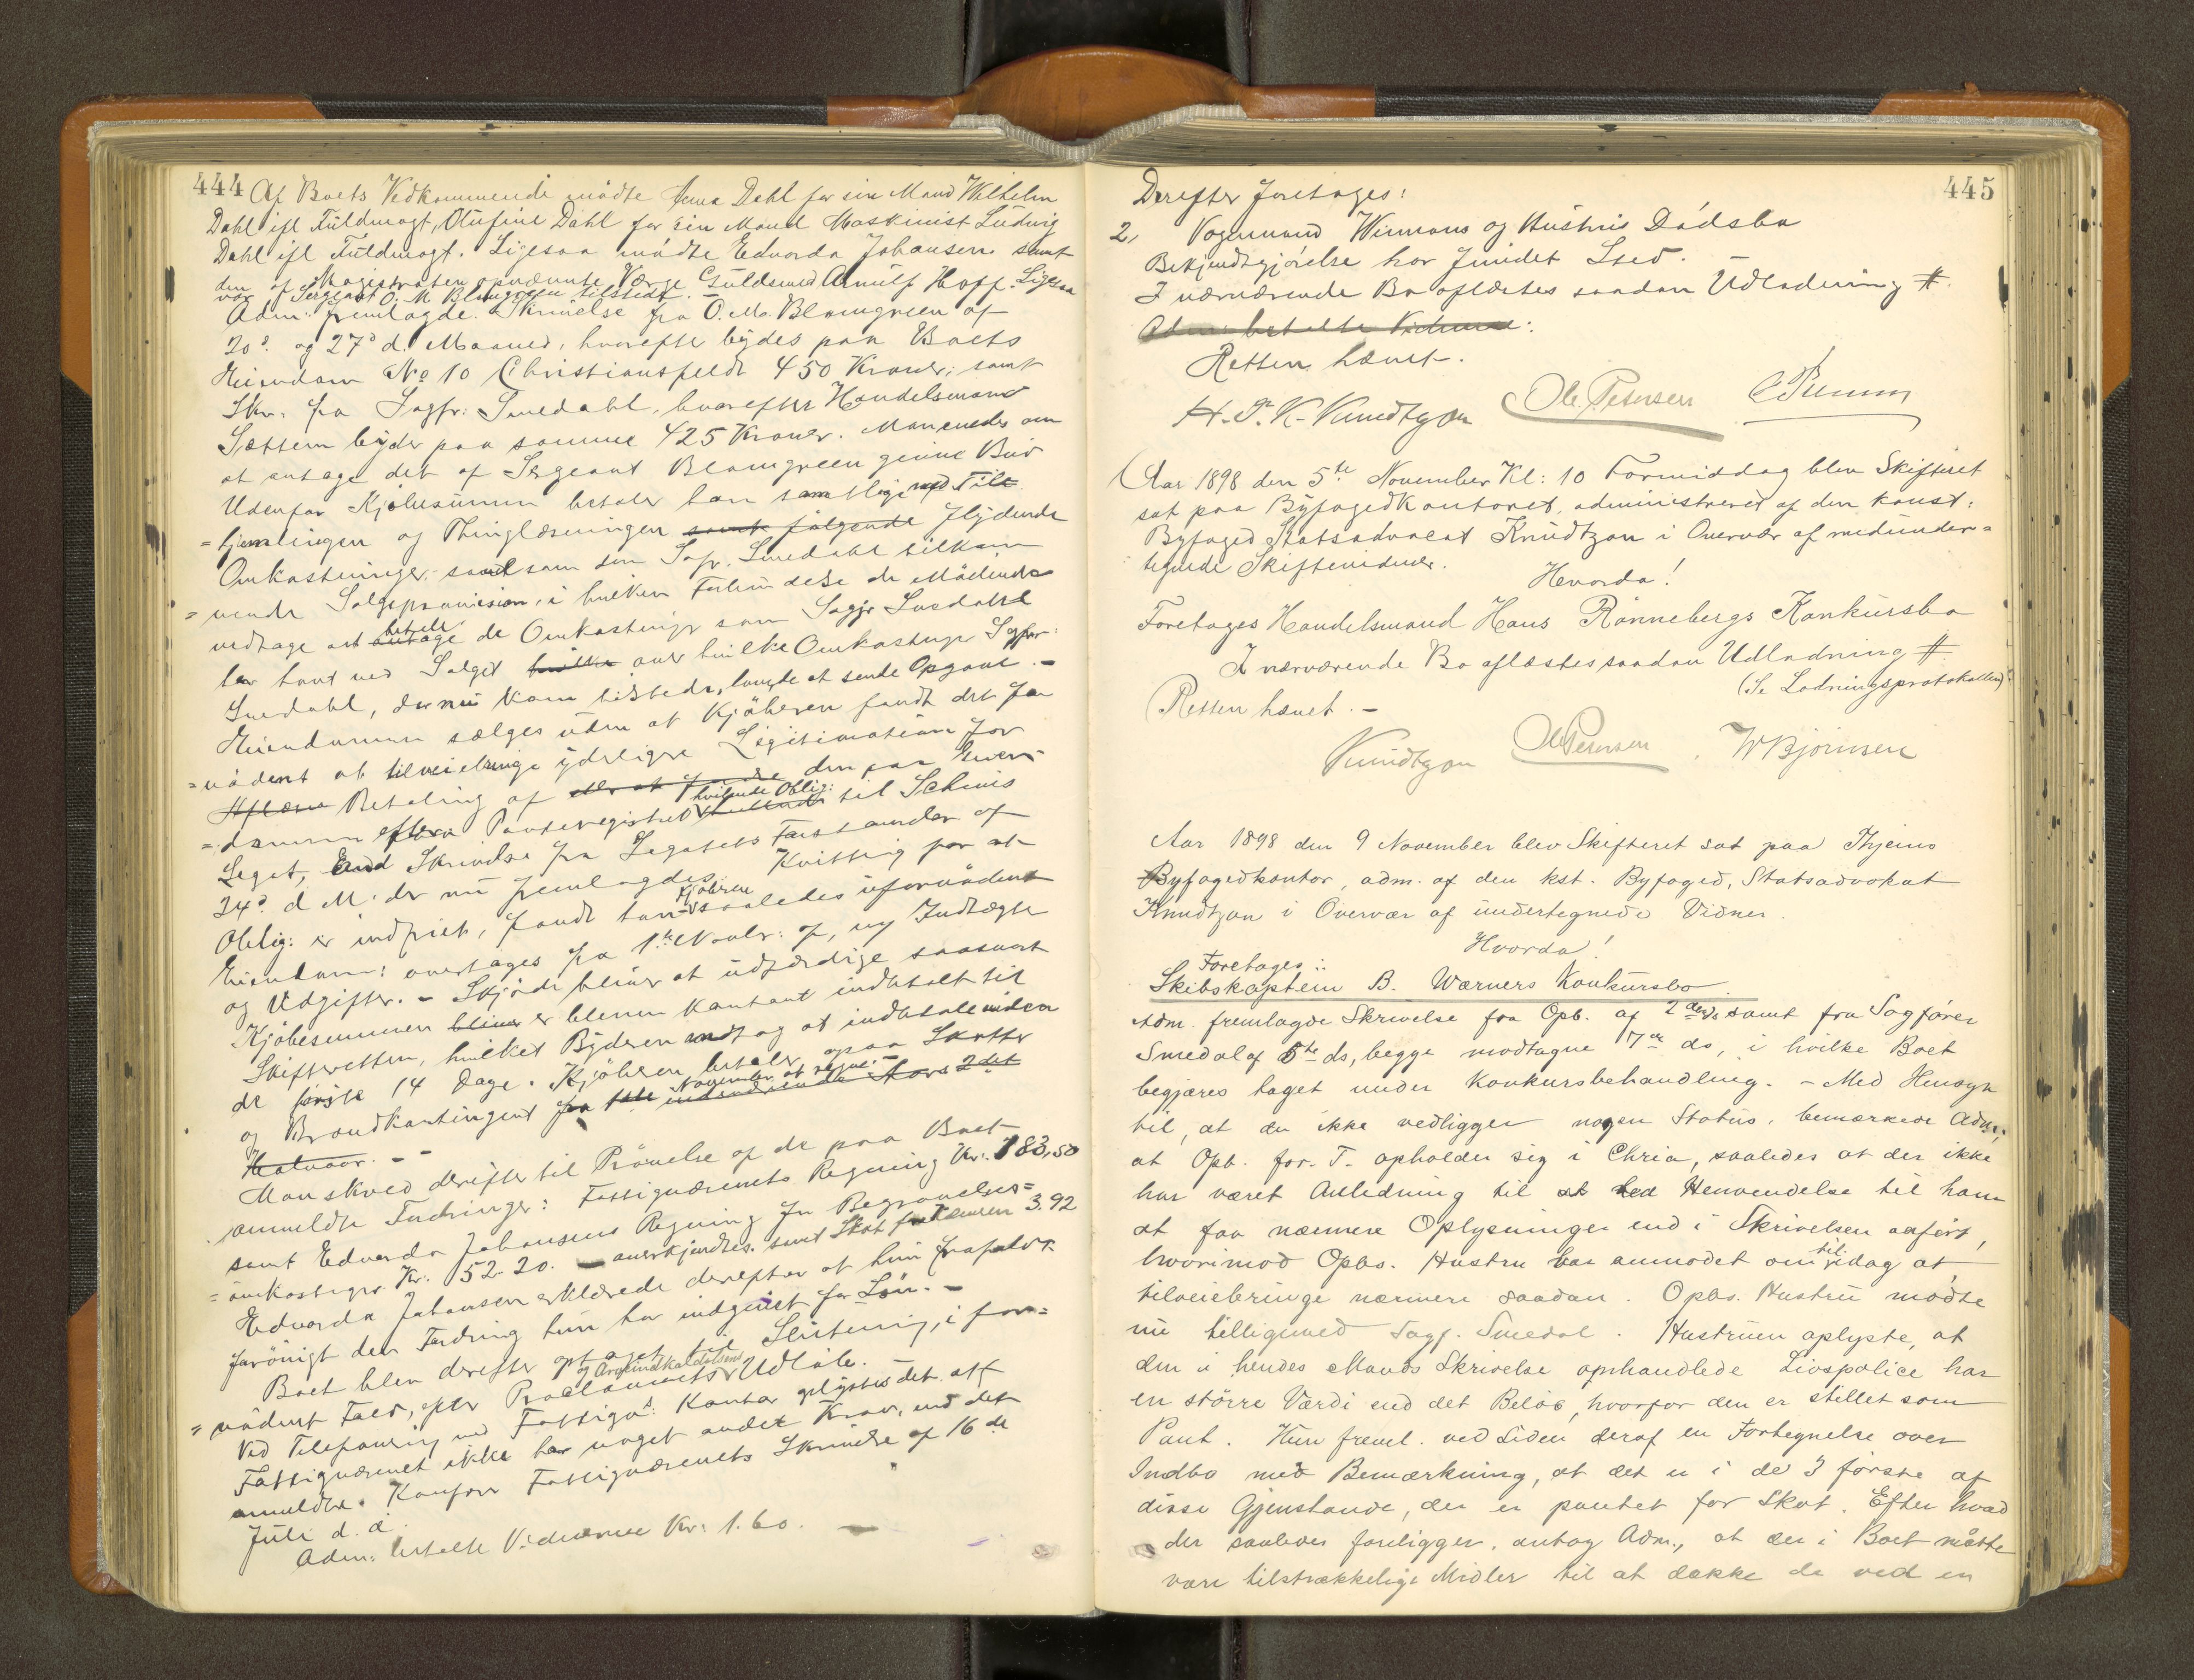 444 Af Boets Vedkommende mödte Anna Dahl for sin Mand Wilhelm
Dahl ifl Fuldmagt, Olufine Dahl for sin Mand Maskinist Ludvig
Dahl ifl Fuldmagt. Ligesaa mödte Edvarda Johansen samt
den af Magistraten opnævnte Værge Guldsmed Arnulf Hoff. Ligesaa
var Sergeant O. M. Blomgreen tilstede. -
Adm: fremlagde Skrivelse fra O. M. Blomgreen af
20d. og 27d d. Maaned, hvorefter bydes paa Boets
Eiendom No 10 Christiansfeldt 450 Kroner, samt
Skr. fra Sagfr: Smedahl, hvorefter Handelsmand
Sættem byder paa samme 425 Kroner. Man enedes om
at antage det af Sergeant Blomgreen givne Bud
Udenfor Kjöbesummen betaler han samtlige med Tilt
= hjemlingen og Thinglæsningen samt fölgende flydende
Omkostninger, samt som den Sagf. Smedahl tilkom
= mende Salgsprovision, i hvilken Forbindelse de Mödende
vedtage at antage betale de Omkostninger som Sagfr Smedahl
har havt ved Salget hvilke over hvilke Omkostninger Sagfør:
Smedahl, der nu kom tilstede, lovede at sende Opgave. -
Eiendommen sælges uden at Kjöberen fandt det for
= nödent at tilveiebringe yderligere Legitimation for
Aflæsn Betaling af den paa Eien=
= dommen efter Panteregistret hvilende Oblig: til Schnis
Legat, End Skrivelse fra Legatets Forstander af
24d. d M. der nu fremlagdes, Kvittering for at
Oblig: er indfriet, fandt han Kjöberen saaledes ufornödent
Eiendom: overtages fra 1ste Novbr: af, og Indtægter
og Udgifter. - Skjöde bliver at udfærdige saasnart
Kjöbesummen bliver er bleven kontant indbetalt til
Skifteretten, hvilket Byderen vedtog at indbetale inden
de förste 14 Dage. Kjöberen betaler ogsaa Skatter
og Brandkontingent fra 1ste November at regne. indeværende Aars 2det
Halvaar. - -
Man skred derefter til Prövelse af de paa Boet
anmeldte Fordringer: Fattigvæsenets Regning Kr. 183,50
samt Edvarda Johansens Regning for Begravelses=
= omkostninger Kr. 52.20. - anerkjendtes. samt Skat fra Kemneren 3.92
Edvarda Johansen erklærede derefter at hun frafaldt
forövrigt den Fordring hun har indgivet for Lön. -
Boet blev derefter optaget til Slutning, i for=
= nödent Fald, efter Proclamets og Arveindkaldelsens Udlöb.
Ved Telefonering med Fattigv: Kontor oplystes det at
Fattigvæsenet ikke har noget andet Krav, end det
anmeldte. Konfr Fattigvæsenets Skrivelse af 16de
Juli d. å.
Adm: betalte Vidnerne Kr: 1.60. -
Derefter foretages: 445
2, Vognmand Winmans og Hustrus Dödsbo
Bekjendtgjörelse har fundet Sted.
I nærværende Bo aflæstes saadan Udlodning #.
Adm: betalte Vidnerne:
Retten hævet.
H. P. K. Knudtzon Ole Petersen
Aar 1898 den 5te November Kl: 10 Formiddag blev Skifteret
sat paa Byfogedkontoret, administreret af den konst:
Byfoged Statsadvokat Knudtzon i Overvær af medunder=
tegnede Skiftevidner.
Hvorda!
Foretages Handelsmand Hans Rönnebergs Konkursbo
I nærværende Bo aflæstes saadan Udlodning #
(Se Lodningsprotokollen)
Retten hævet. -
Knudtzon Ole Petersen W Björnsen
Aar 1898 den 9 November blev Skifteret sat paa Thjems
Byfogedkontor, adm. af den kst. Byfoged, Statsadvokat
Knudtzon i Overvær af undertegnede Vidner.
Hvorda!
Foretages:
Skibskaptein B. Wærners Konkursbo.
Adm. fremlagde Skrivelse fra Opb. af 2den ds samt fra Sagförer
Smedal af 5te ds, begge modtagne 7de ds, i hvilke Boet
begjæres taget under Konkursbehandling. - Med Hensyn
til, at der ikke vedligger nogen Status, bemærkede Adm.,
at Opb. for. T. opholder sig i Chria, saaledes at der ikke
har været Anledning til at ved Henvendelse til ham
at faa nærmere Oplysninger end i Skrivelsen anfört,
hvorimod Opbs. Hustru var anmodet om til idag at
tilveiebringe nærmere saadan. Opbs. Hustru mödte
nu tilligemed Sagf. Smedal. Hustruen oplyste, at
den i hendes Mands Skrivelse omhandlede Livspolice har
en större Værdi end det Belöb, hvorfor den er stillet som
Pant. Hun freml. ved Siden deraf en Fortegnelse over
Indbo med Bemærkning, at det er i de 3 förste af
disse Gjenstande, der er pantet for Skat. Efter hvad
der saaledes foreligger, antog Adm., at der i Boet måtte
være tilstrækkelige Midler til at dække de ved en